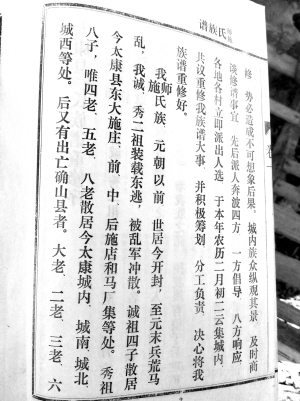 氏族谱
卷一
修 势必造成不可想象后果。城内族众纵观其景 及时商
谈修谱事宜 先后派人奔波四方 一方倡导 八方响应
各地各村立即派出人选 于本年农历二月初二云集城内
共议重修我族谱大事 并积极筹划 分工负责 决心将我
族谱重修好。
我师氏族 元朝以前 世居今开封，至元末兵荒马
乱，我诚、秀二祖装载东逃，被乱军冲散。诚祖四子散居
今太康县东大施庄、前、中、后施店和马厂集等处。秀祖
八子，唯四老、五老、八老散居今太康城内、城南、城北、
城西等处。后又有出亡确山县者。大老、二老、三老、六